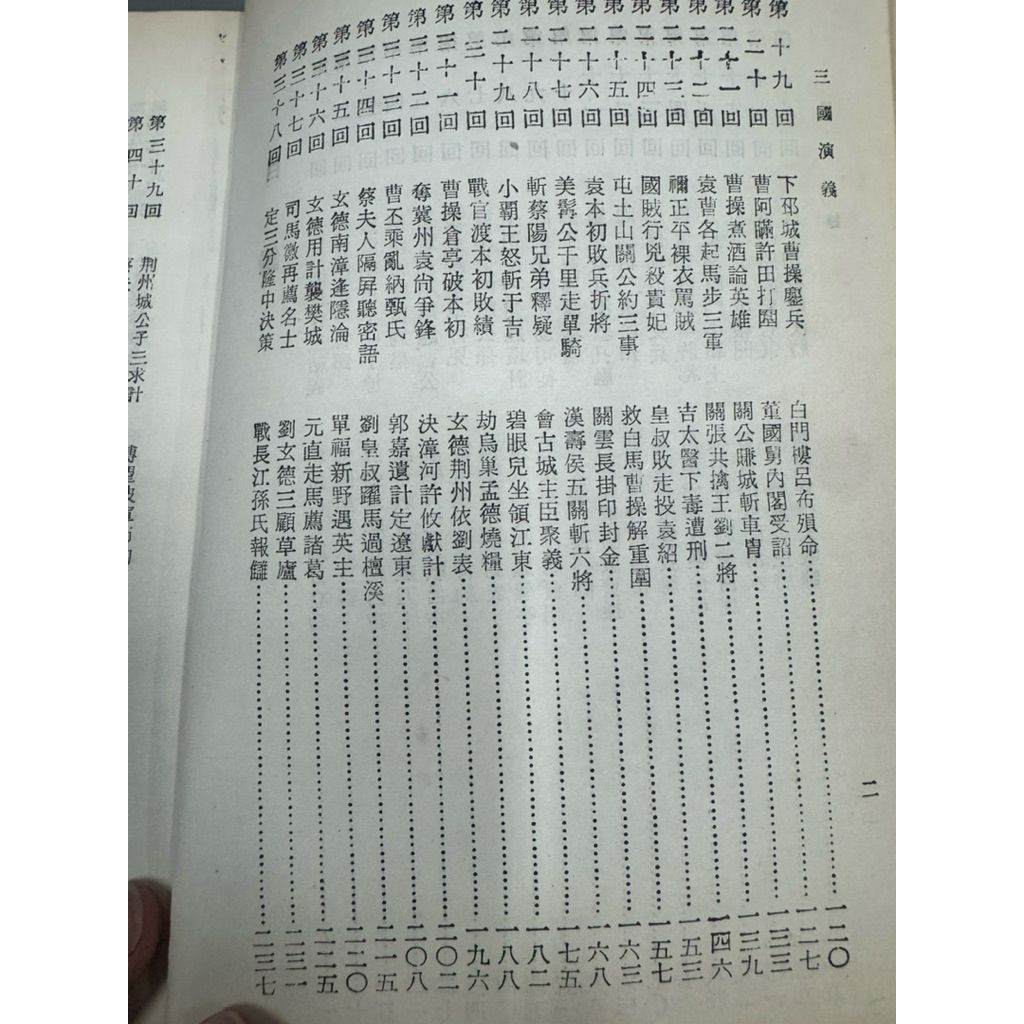 三國演義
第十九回 下邳城曹操鏖兵 白門樓呂布殞命……一二〇
第二十回 曹阿瞞許田打圍 董國舅內閣受詔……一二七
第二十一回 曹操煮酒論英雄 關公賺城斬車冑……一三三
第二十二回 袁曹各起馬步三軍 關張共擒王劉二將……一三九
第二十三回 禰正平裸衣罵賊 吉太醫下毒遭刑……一四六
第二十四回 國賊行兇殺貴妃 皇叔敗走投袁紹……一五三
第二十五回 屯土山關公約三事 救白馬曹操解重圍……一五七
第二十六回 袁本初敗兵折將 關雲長掛印封金……一六三
第二十七回 美髯公千里走單騎 漢壽侯五關斬六將……一六八
第二十八回 斬蔡陽兄弟釋疑 會古城主臣聚義……一七五
第二十九回 小霸王怒斬于吉 碧眼兒坐領江東……一八二
第三十回 戰官渡本初敗績 劫烏巢孟德燒糧……一八八
第三十一回 曹操倉亭破本初 玄德荆州依劉表……一九六
第三十二回 奪冀州袁尙爭鋒 決漳河許攸獻計……二〇二
第三十三回 曹丕乘亂納甄氏 郭嘉遺計定遼東……二〇八
第三十四回 蔡夫人隔屏聽密語 劉皇叔躍馬過檀溪……二一五
第三十五回 玄德南漳逢隱淪 單福新野遇英主……二二〇
第三十六回 玄德用計襲樊城 元直走馬薦諸葛……二二五
第三十七回 司馬徽再薦名士 劉玄德三顧草廬……二三一
第三十八回 定三分隆中決策 戰長江孫氏報讎……二三七
二
第三十九回 荆州城公子三求計
第四十回